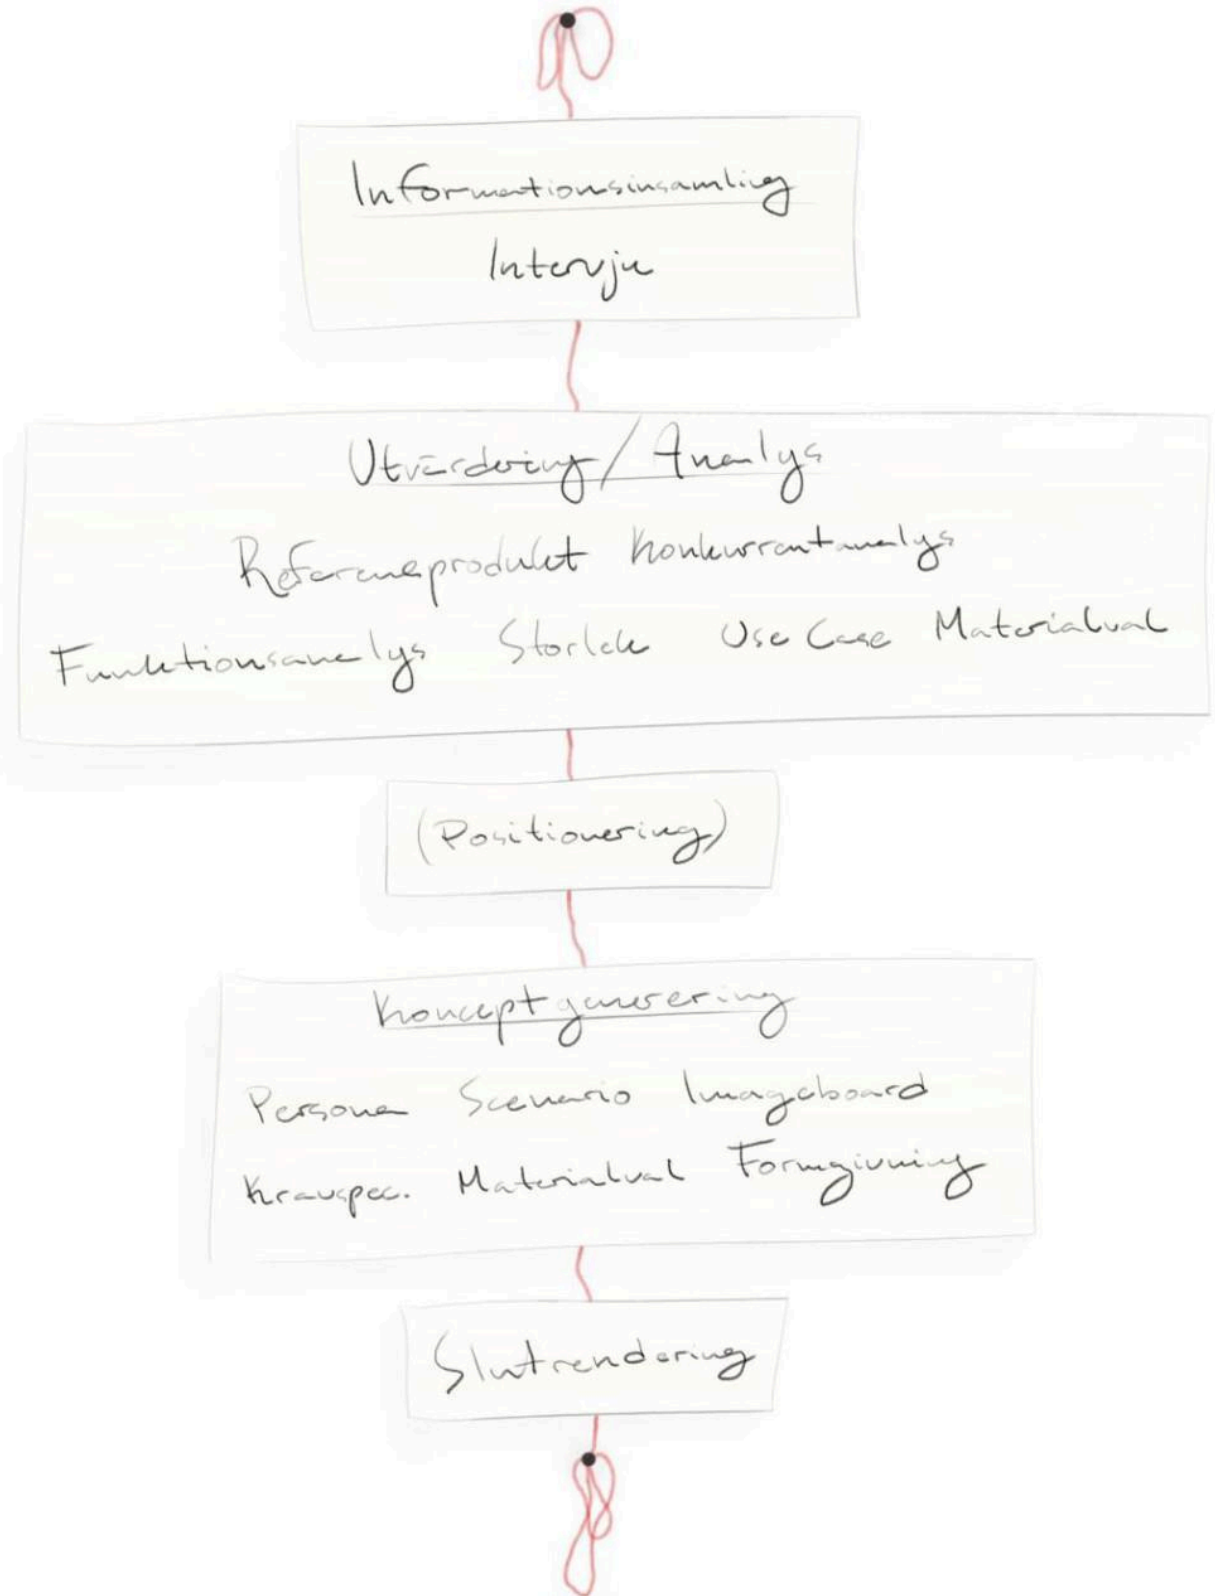 Informationsinsamling
Intervju
Utvärdering/Analys
Referensprodukt Konkurrentanalys
Funktionsanalys Storlek Use Case Materialval
(Positionering)
Konceptgenerering
Persona Scenario Imageboard
Kravspec. Materialval Formgivning
Slutrendering